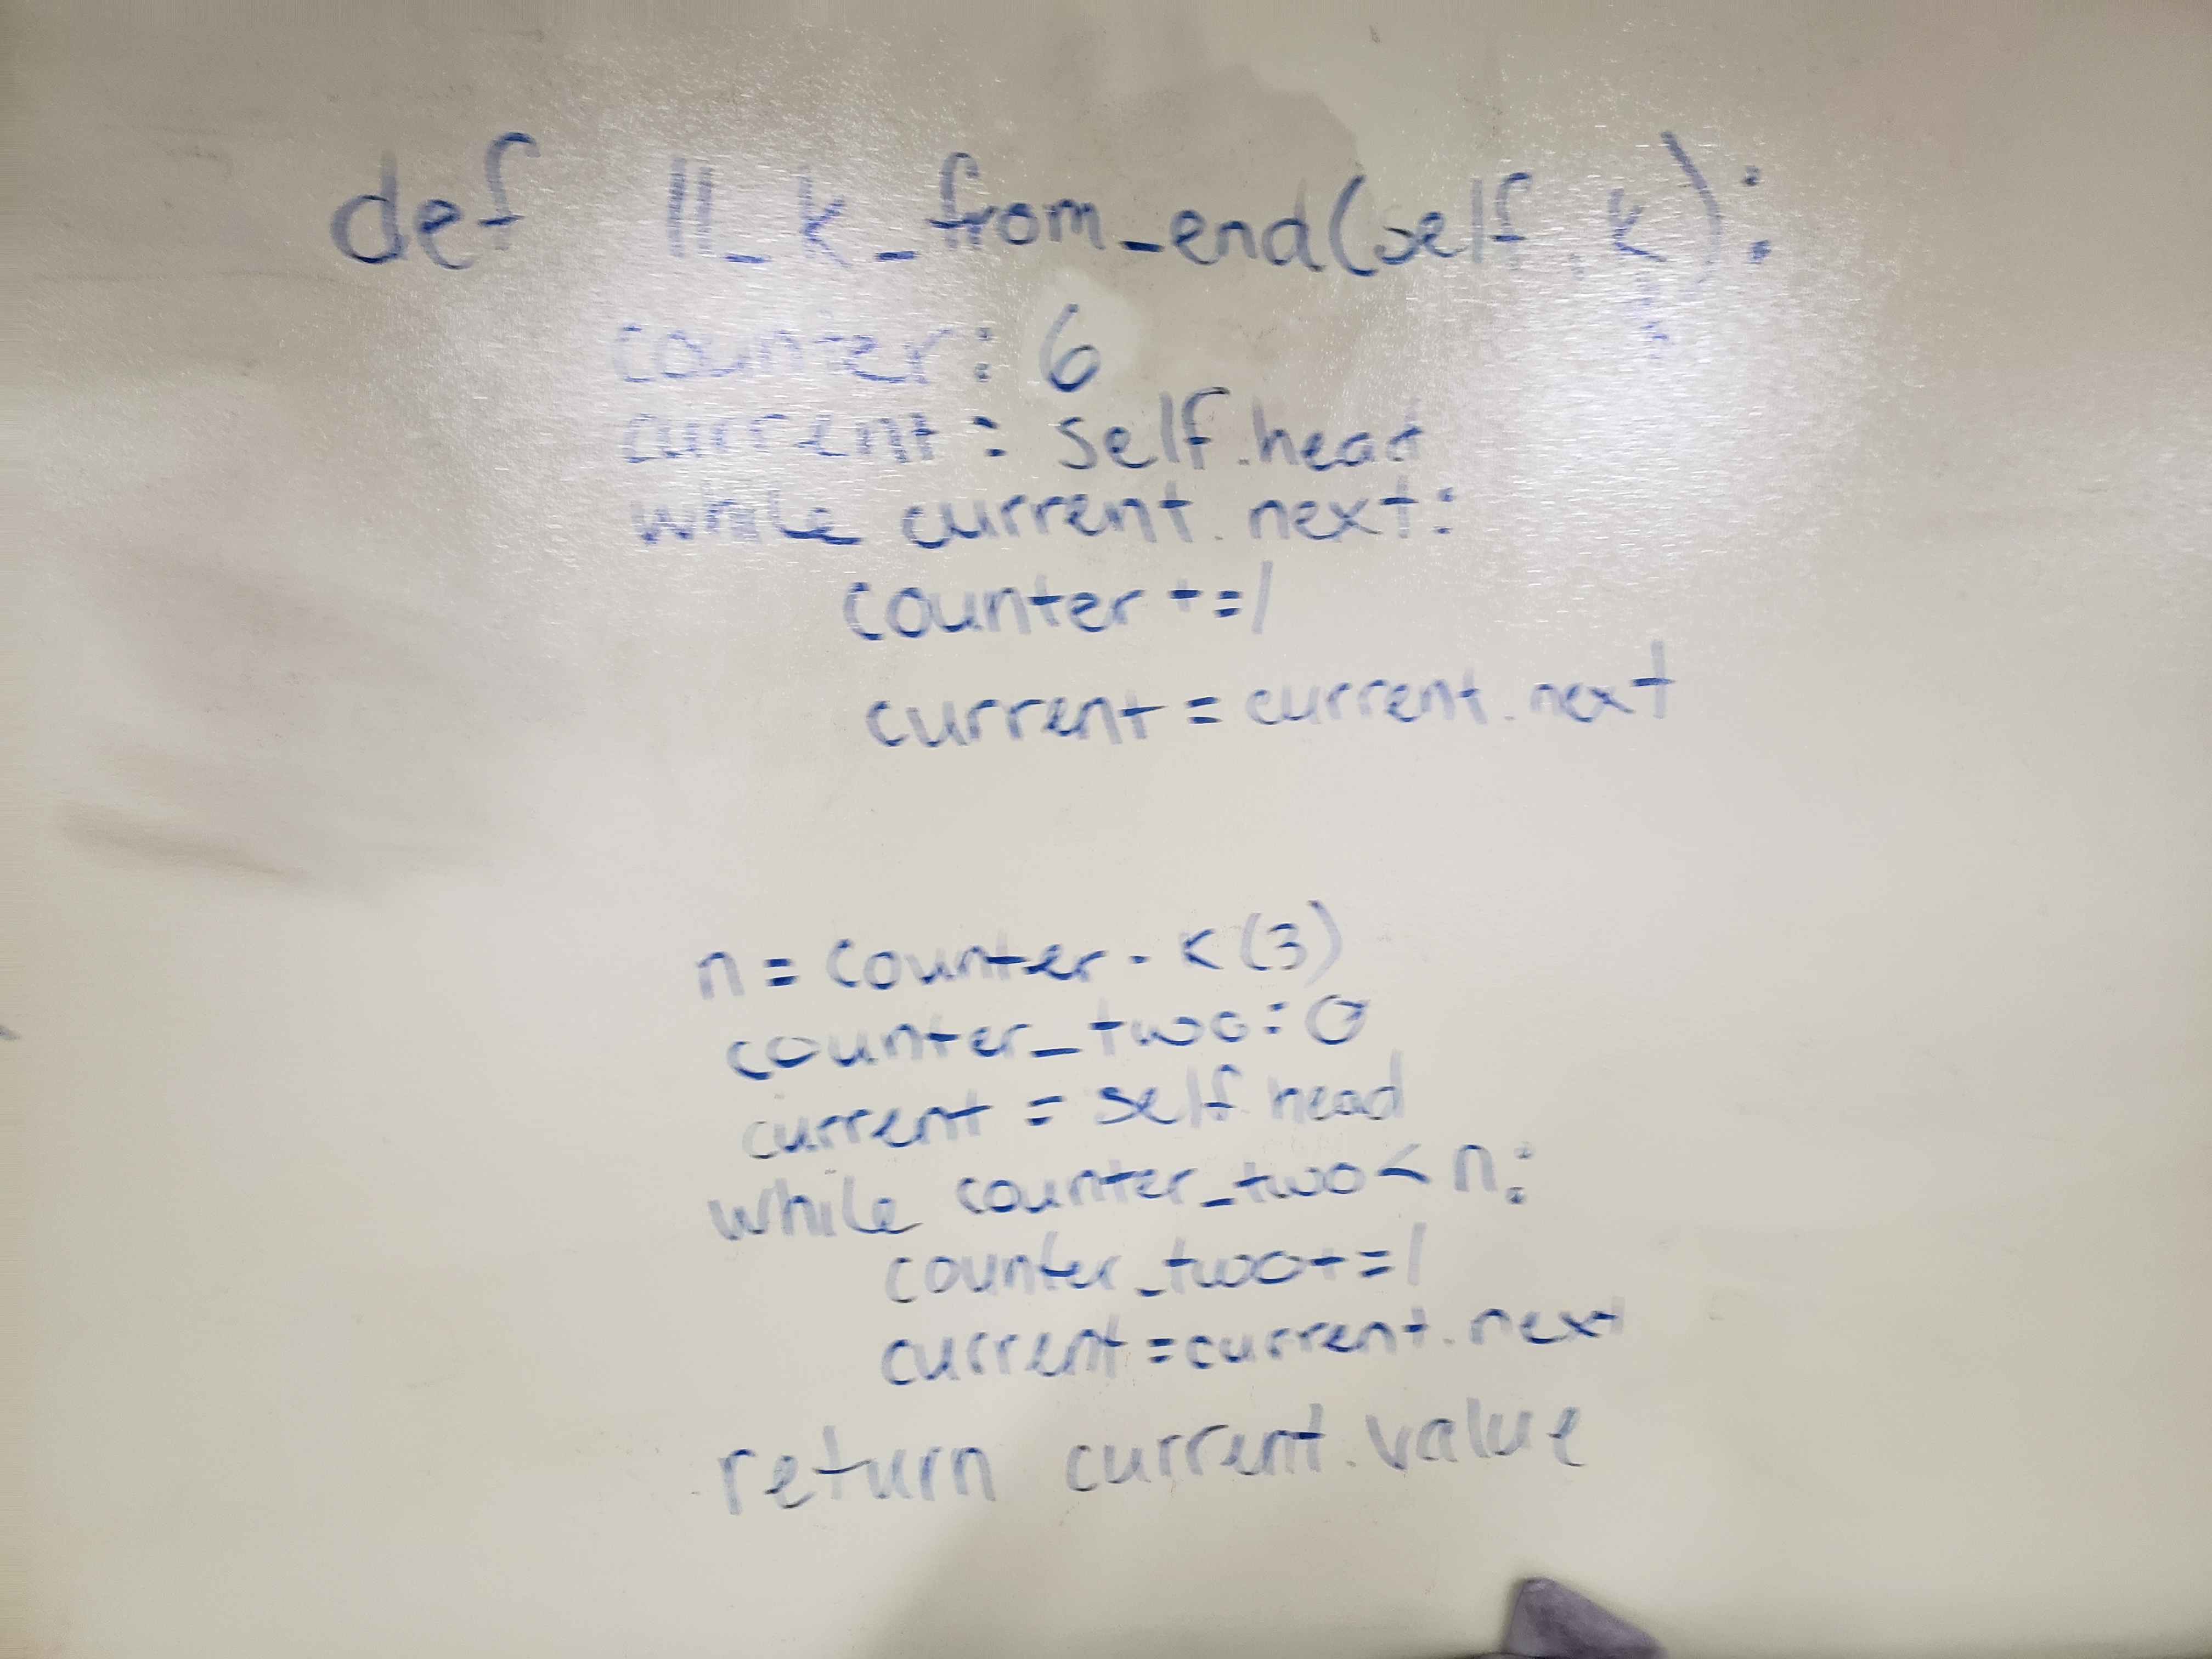 def ll_k_from_end(self, k):
counter: 6
current = self.head
while current.next:
counter +=1
current = current.next
n = counter - k (3)
counter_two = 0
current = self.head
while counter_two < n:
counter_two += 1
current = current.next
return current.value